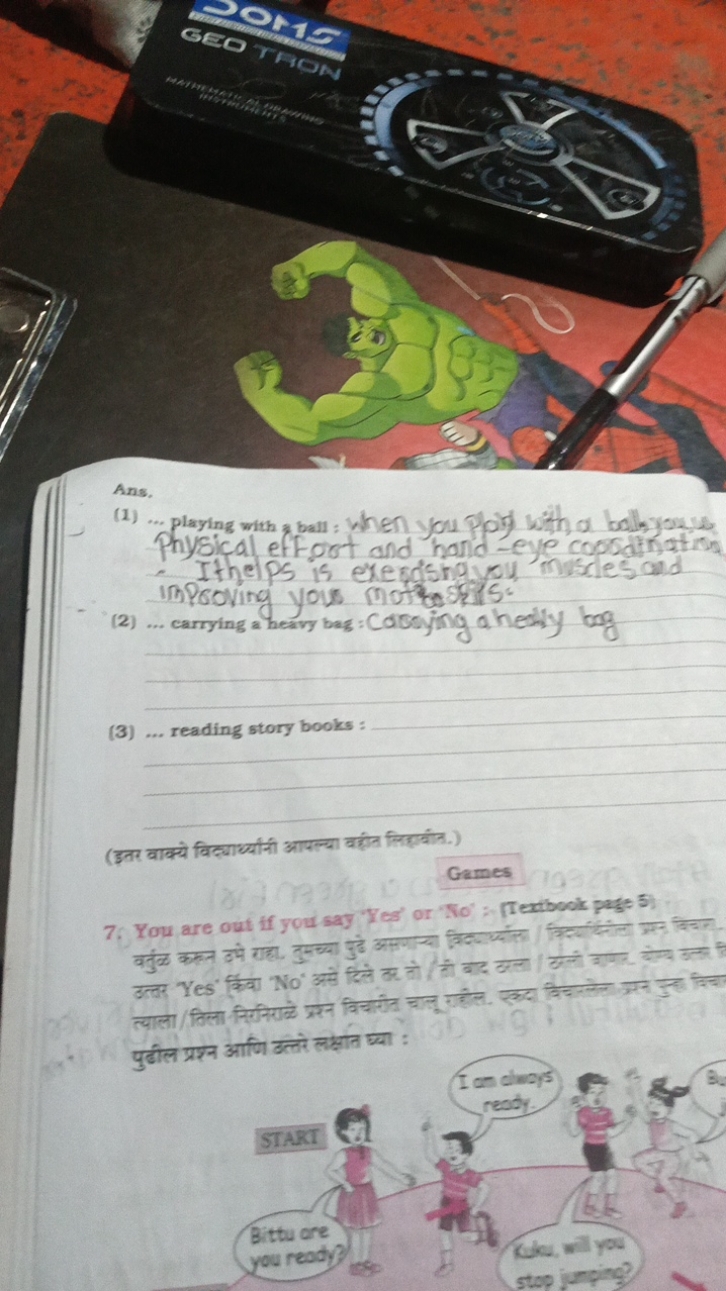 DOMS
GEO TRON
MATHEMATICAL DRAWING
INSTRUMENTS
Ans.
(1) ... playing with a ball : when you play with a ball, you us
Physical effort and hand-eye coordination
It helps is exercising you muscles and
improving your motor skills.
(2) ... carrying a heavy bag : Carrying a heavy bag
(3) ... reading story books :
(इतर वाक्ये विद्यार्थ्यांनी आपल्या वहीत लिहावीत.)
Games
7. You are out if you say 'Yes' or 'No' : (Textbook page 5)
वर्तुळ करून उभे राहा. तुमच्या पुढे असणाऱ्या विद्यार्थ्याला / विद्यार्थिनीला प्रश्न विचारा.
उत्तर 'Yes' किंवा 'No' असे दिले तर तो / ती बाद ठरला / ठरली जाणार. योग्य उत्तर
त्याला / तिला निरनिराळे प्रश्न विचारीत चालू राहील. एकदा विचारलेला प्रश्न पुन्हा
पुढील प्रश्न आणि उत्तरे लक्षात घ्या :
I am always
ready.
START
Bittu are
you ready?
Kuku, will you
stop jumping?